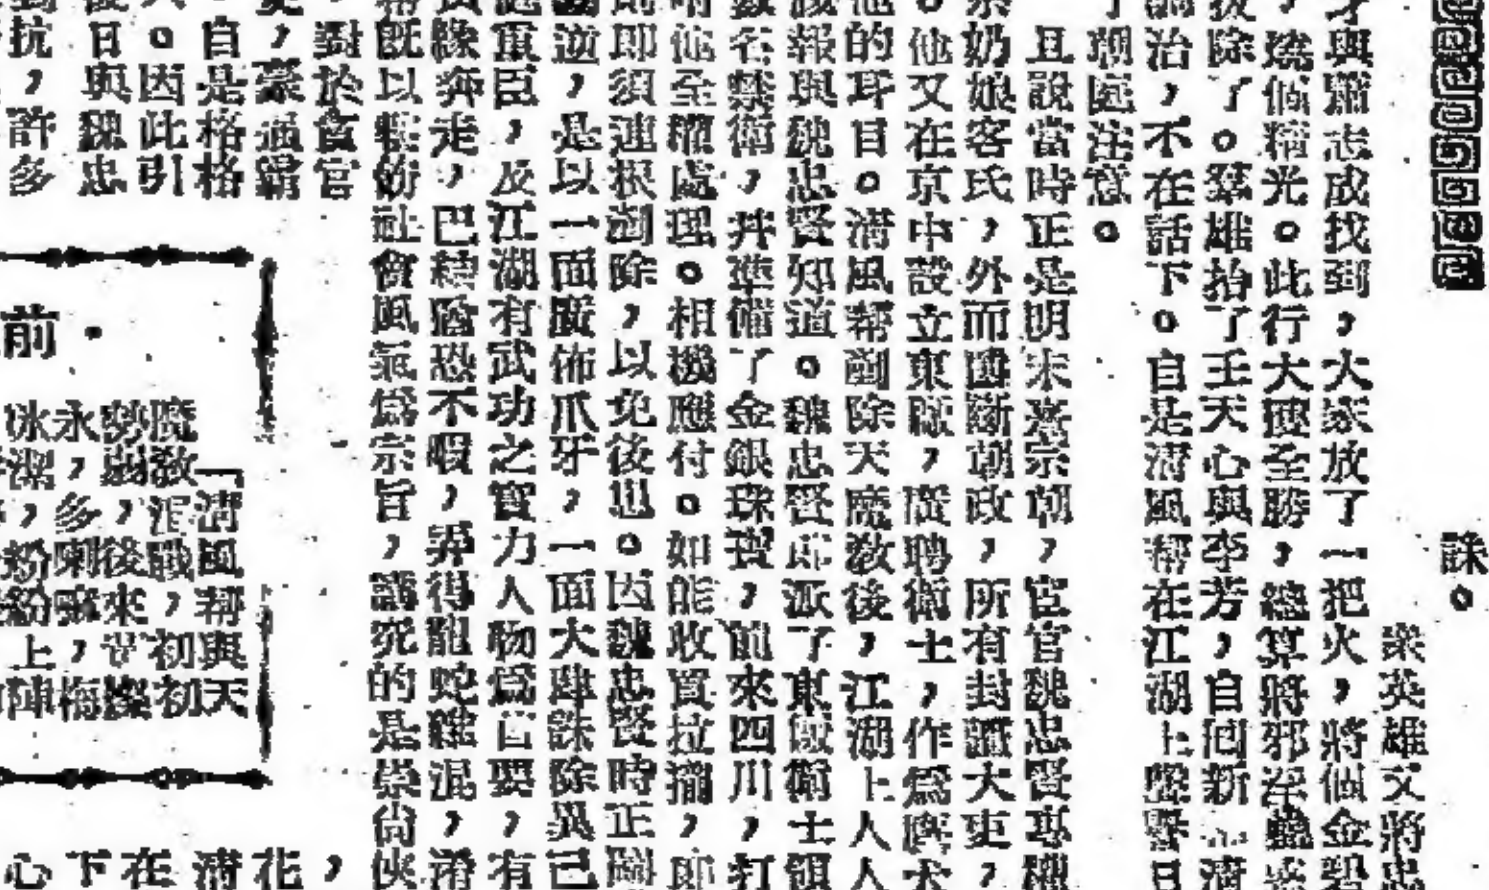 誅。
衆英雄又將
才與蕭志成找到，大家放了一把火，將個金
，燒個精光。此行大獲全勝，總算將邪淫
拔除了。羣雄抬了王天心與李芳，自回新
治，不在話下。自是清風幫在江湖上聲譽日
了朝廷注意。
且說當時正是明末熹宗朝，宦官魏忠賢專權
奶娘客氏，外而壟斷朝政，所有封疆大吏，
。他又在京中設立東廠，廣聘衛士，作爲鷹犬
他的耳目。清風幫剷除天魔教後，江湖上人人
報與魏忠賢知道。魏忠賢即派了東廠衛士領
數名禁衛，并準備了金銀珠寶，前來四川，打
他全權處理。相機應付。如能收買拉攏，即
即須連根剷除，以免後患。因魏忠賢時正
逆，是以一面廣佈爪牙，一面大肆誅除異己
重臣，及江湖有武功之實力人物爲首要，有
緣奔走，巴結猶恐不暇，弄得龍蛇雜混，淆
既以
社會風氣爲宗旨，講究的是崇尚俠
對於貪官
，豪
霸
自是格格
。因此引
日與魏忠
抗，許多
前．
「清風幫與天
魔教混戰，初初
，後來
永，多喇嘛，梅
冰潔，紛紛上陣
，花清在下心